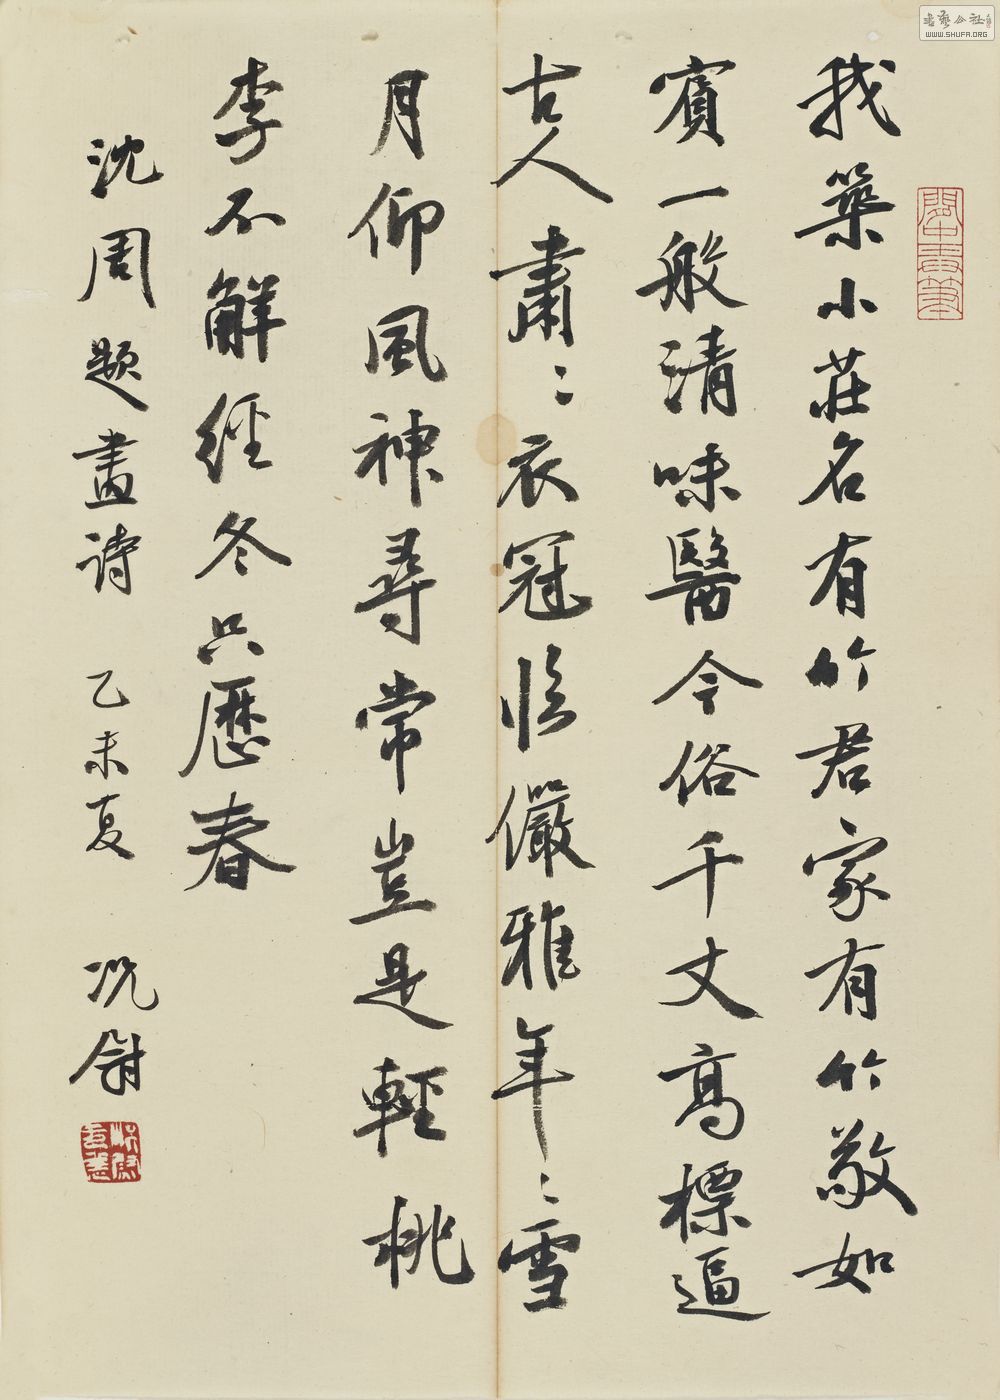 我築小莊名有竹君家有竹敬如
賓一般清味醫今俗千丈高標逼
古人肅〻衣冠临儼雅年〻雪
月仰風神尋常豈是輕桃
李不解經冬只歷春
沈周题畫诗 乙未夏 况尉
WWW.SHUFA.ORG